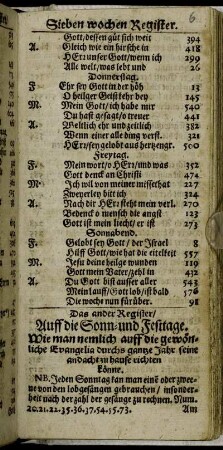 Sieben wochen Register.
6
Gott/dessen güt sich weit 394
A. Gleich wie ein hirsche in 418
HErr unser Gott/wenn ich 299
Alle welt/was lebt und 26
Donnerstag.
F Ehr sey Gott in der höh 13
O heilger Geist kehr bey 145
M. Mein Gott/ich habe mir 540
Du hast gesagt/o treuer 441
A. Weltlich ehr und zeitlich 382
Wenn einer alle ding verst. 321
HErr/sey gelobt aus hertzengr. 500
Freytag.
F. Mein wort/o HErr/und was 352
Gott denck an Christi 474
M. Ich wil von meiner missethat 227
Zweyerley bitt ich 224
A. Nach dir HErr steht mein verl. 270
Bedenck o mensch die angst 123
Gott ist mein liecht/er ist 273
Sonnabend.
F. Gelobt sey Gott / der Israel 8
Hilff Gott/wie hat die eitelkeit 557
M. Jesu deine heilge wunden 119
Gott mein Vater/zehl in 432
A. Du Gott bist ausser aller 543
Mein lauff/Gott lob/ist bald 576
Die woch nun fürüber. 98
Das ander Register/
Auff die Sonn- und Festtage.
Wie man nemlich auff die gewön-
liche Evangelia durchs gantze Jahr seine
andacht zu hause richten
könne.
NB. Jeden Sonntag kan man eine oder zwee-
ne von den lobgesängen gebrauchen/ insonder-
heit nach der zahl der gesänge zu rechnen. Num.
20.21.22.35.36.37.54.15.73. Am